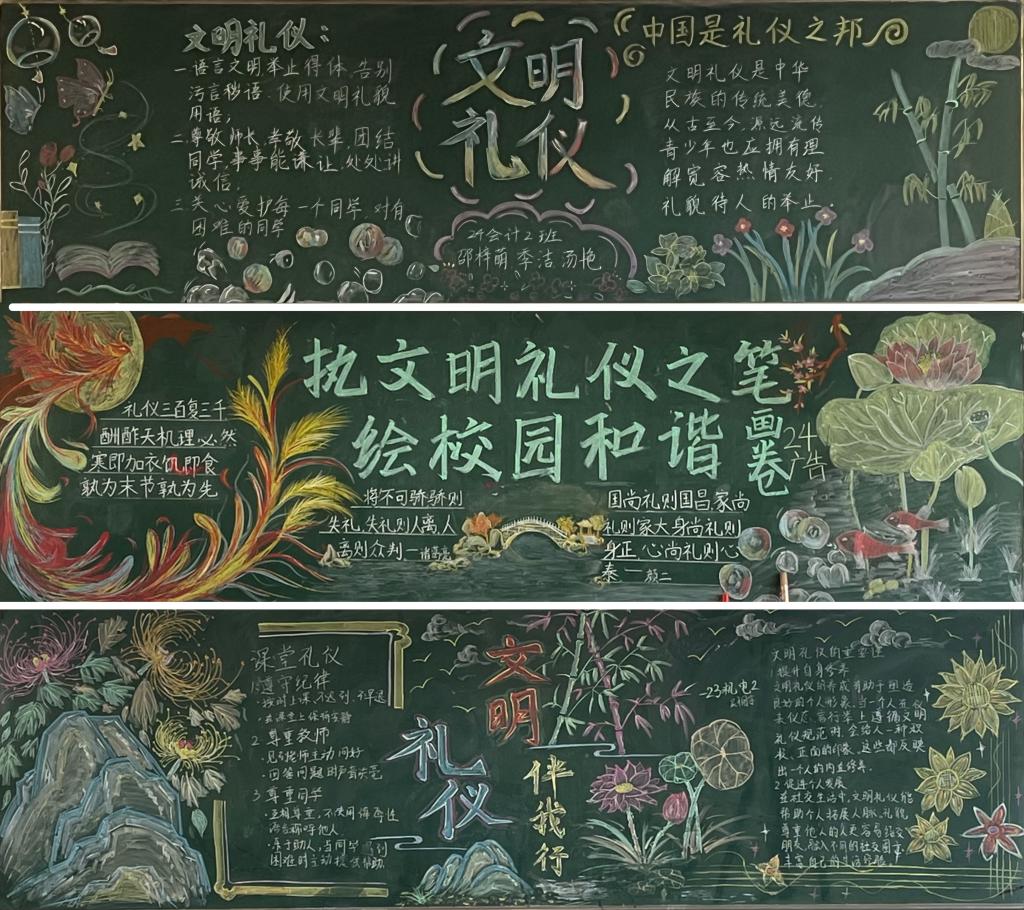 文明礼仪：
一语言文明举止得体.告别
污言秽语.使用文明礼貌
用语；
二尊敬师长.孝敬长辈.团结
同学.事事能谦让.处处讲
诚信.
三关心爱护每一个同学.对有
困难的同学
文明
礼仪
24会计2班
邵梓萌 李洁 汤艳
中国是礼仪之邦
文明礼仪是中华
民族的传统美德.
从古至今.源远流传
青少年也应拥有理
解宽容热情友好.
礼貌待人的举止.
礼仪三百复三千
酬酢天机理必然
寒即加衣饥即食
孰为末节孰为先
执文明礼仪之笔
绘校园和谐
画卷
24广告
将不可骄骄则
失礼.失礼则人离人
离则众判一诸葛亮
国尚礼则国昌.家尚
礼则家大身尚礼则
身正 心尚礼则心
泰 一 颜二
课堂礼仪
1.遵守纪律
·按时上课.不迟到.不早退
·在课堂上保持安静
2 尊重教师
·见到老师主动问好
·回答问题时声音洪亮
3 尊重同学
·互相尊重，不使用侮辱性
语言称呼他人
·乐于助人，当同学遇到
困难时主动提供帮助
文明
礼仪
伴我行
-23机电2
文明礼仪的重要性
1.提升自身修养
文明礼仪的养成有助于塑造
良好的个人形象.当一个人在
礼仪规范明,会给人一种
正面的印象.这些都反映
出一个人的内在修养.
2 促进个人发展
在社交生活中,文明礼仪能
帮助个人拓展人脉.礼貌
尊重他人的人更容易结交
朋友.融入不同的社交圈子
丰富自己的生活经验.